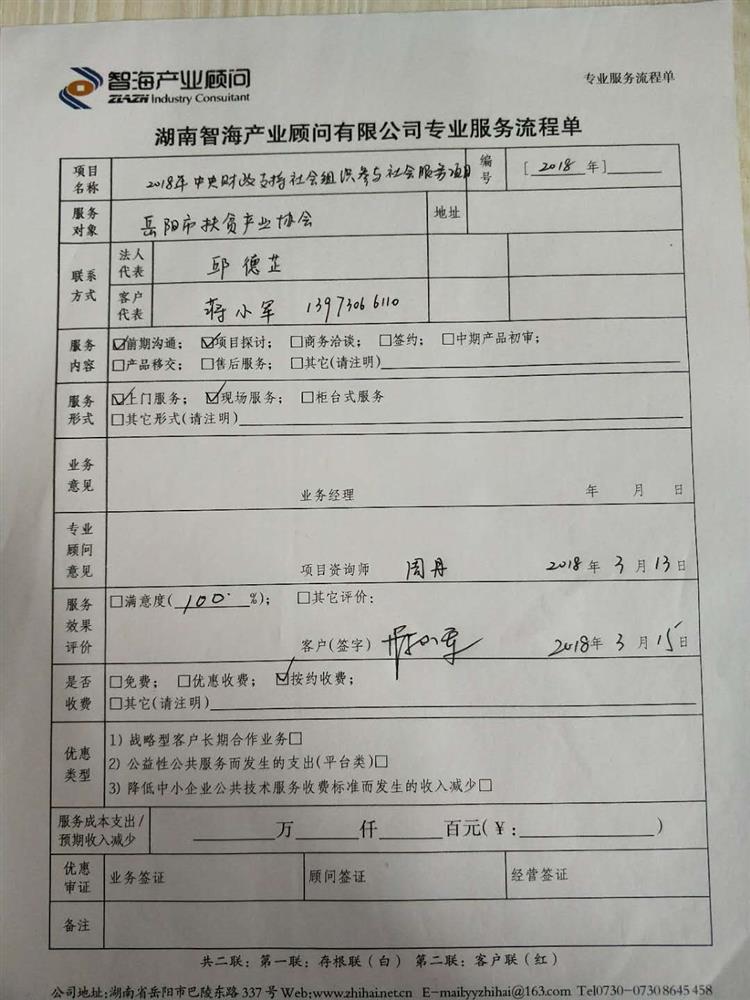 智海产业顾问
ZHAZH Industry Consuitant
专业服务流程单
湖南智海产业顾问有限公司专业服务流程单
项目名称 2018年中央财政支持社会组织参与社会服务项目 编号 [ 2018 年]
服务对象 岳阳市扶贫产业协会 地址
联系方式 法人代表 邱德芷
客户代表 蒋小军 13973066110
服务内容 ☑前期沟通; ☑项目探讨; □商务洽谈; □签约; □中期产品初审;
□产品移交; □售后服务; □其它(请注明)
服务形式 ☑上门服务; ☑现场服务; □柜台式服务
□其它形式(请注明)
业务意见
业务经理 年 月 日
专业顾问意见
项目资询师 周丹 2018 年 3 月 13 日
服务效果评价 □满意度( 100 %); □其它评价:
客户(签字) 蒋小军 2018年 3 月 15 日
是否收费 □免费; □优惠收费; ☑按约收费;
□其它(请注明)
优惠类型 1) 战略型客户长期合作业务□
2) 公益性公共服务而发生的支出(平台类)□
3) 降低中小企业公共技术服务收费标准而发生的收入减少□
服务成本支出/预期收入减少 万 仟 百元(¥: )
优惠审证 业务签证 顾问签证 经营签证
备注
共二联: 第一联: 存根联(白) 第二联: 客户联(红)
公司地址:湖南省岳阳市巴陵东路 337 号 Web:www.zhihai.net.cn E-mailyyzhihai@163.com Tel0730-07308645458